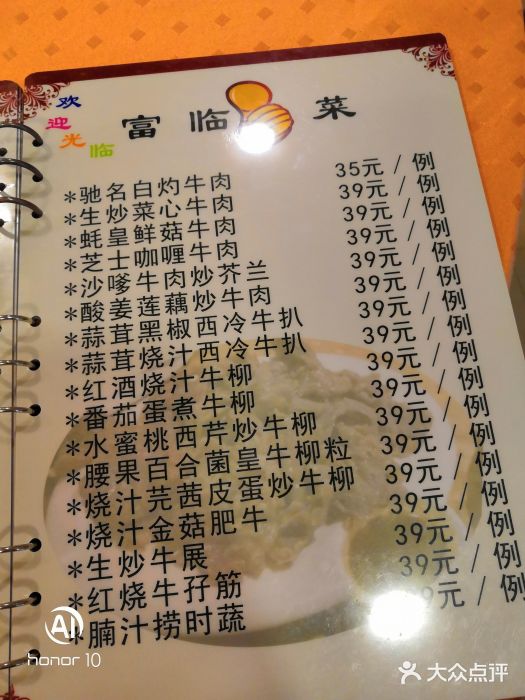 欢迎光临
富临菜
*驰名白灼牛肉 35元/例
*生炒菜心牛肉 39元/例
*蚝皇鲜菇牛肉 39元/例
*芝士咖喱牛肉 39元/例
*沙嗲牛肉炒芥兰 39元/例
*酸姜莲藕炒牛肉 39元/例
*蒜茸黑椒西冷牛扒 39元/例
*蒜茸烧汁西冷牛扒 39元/例
*红酒烧汁牛柳 39元/例
*番茄蛋煮牛柳 39元/例
*水蜜桃西芹炒牛柳 39元/例
*腰果百合菌皇牛柳粒 39元/例
*烧汁芫茜皮蛋炒牛柳 39元/例
*烧汁金菇肥牛 39元/例
*生炒牛展 39元/例
*红烧牛孖筋 39元/例
*腩汁捞时蔬 39元/例
AI
honor 10
大众点评